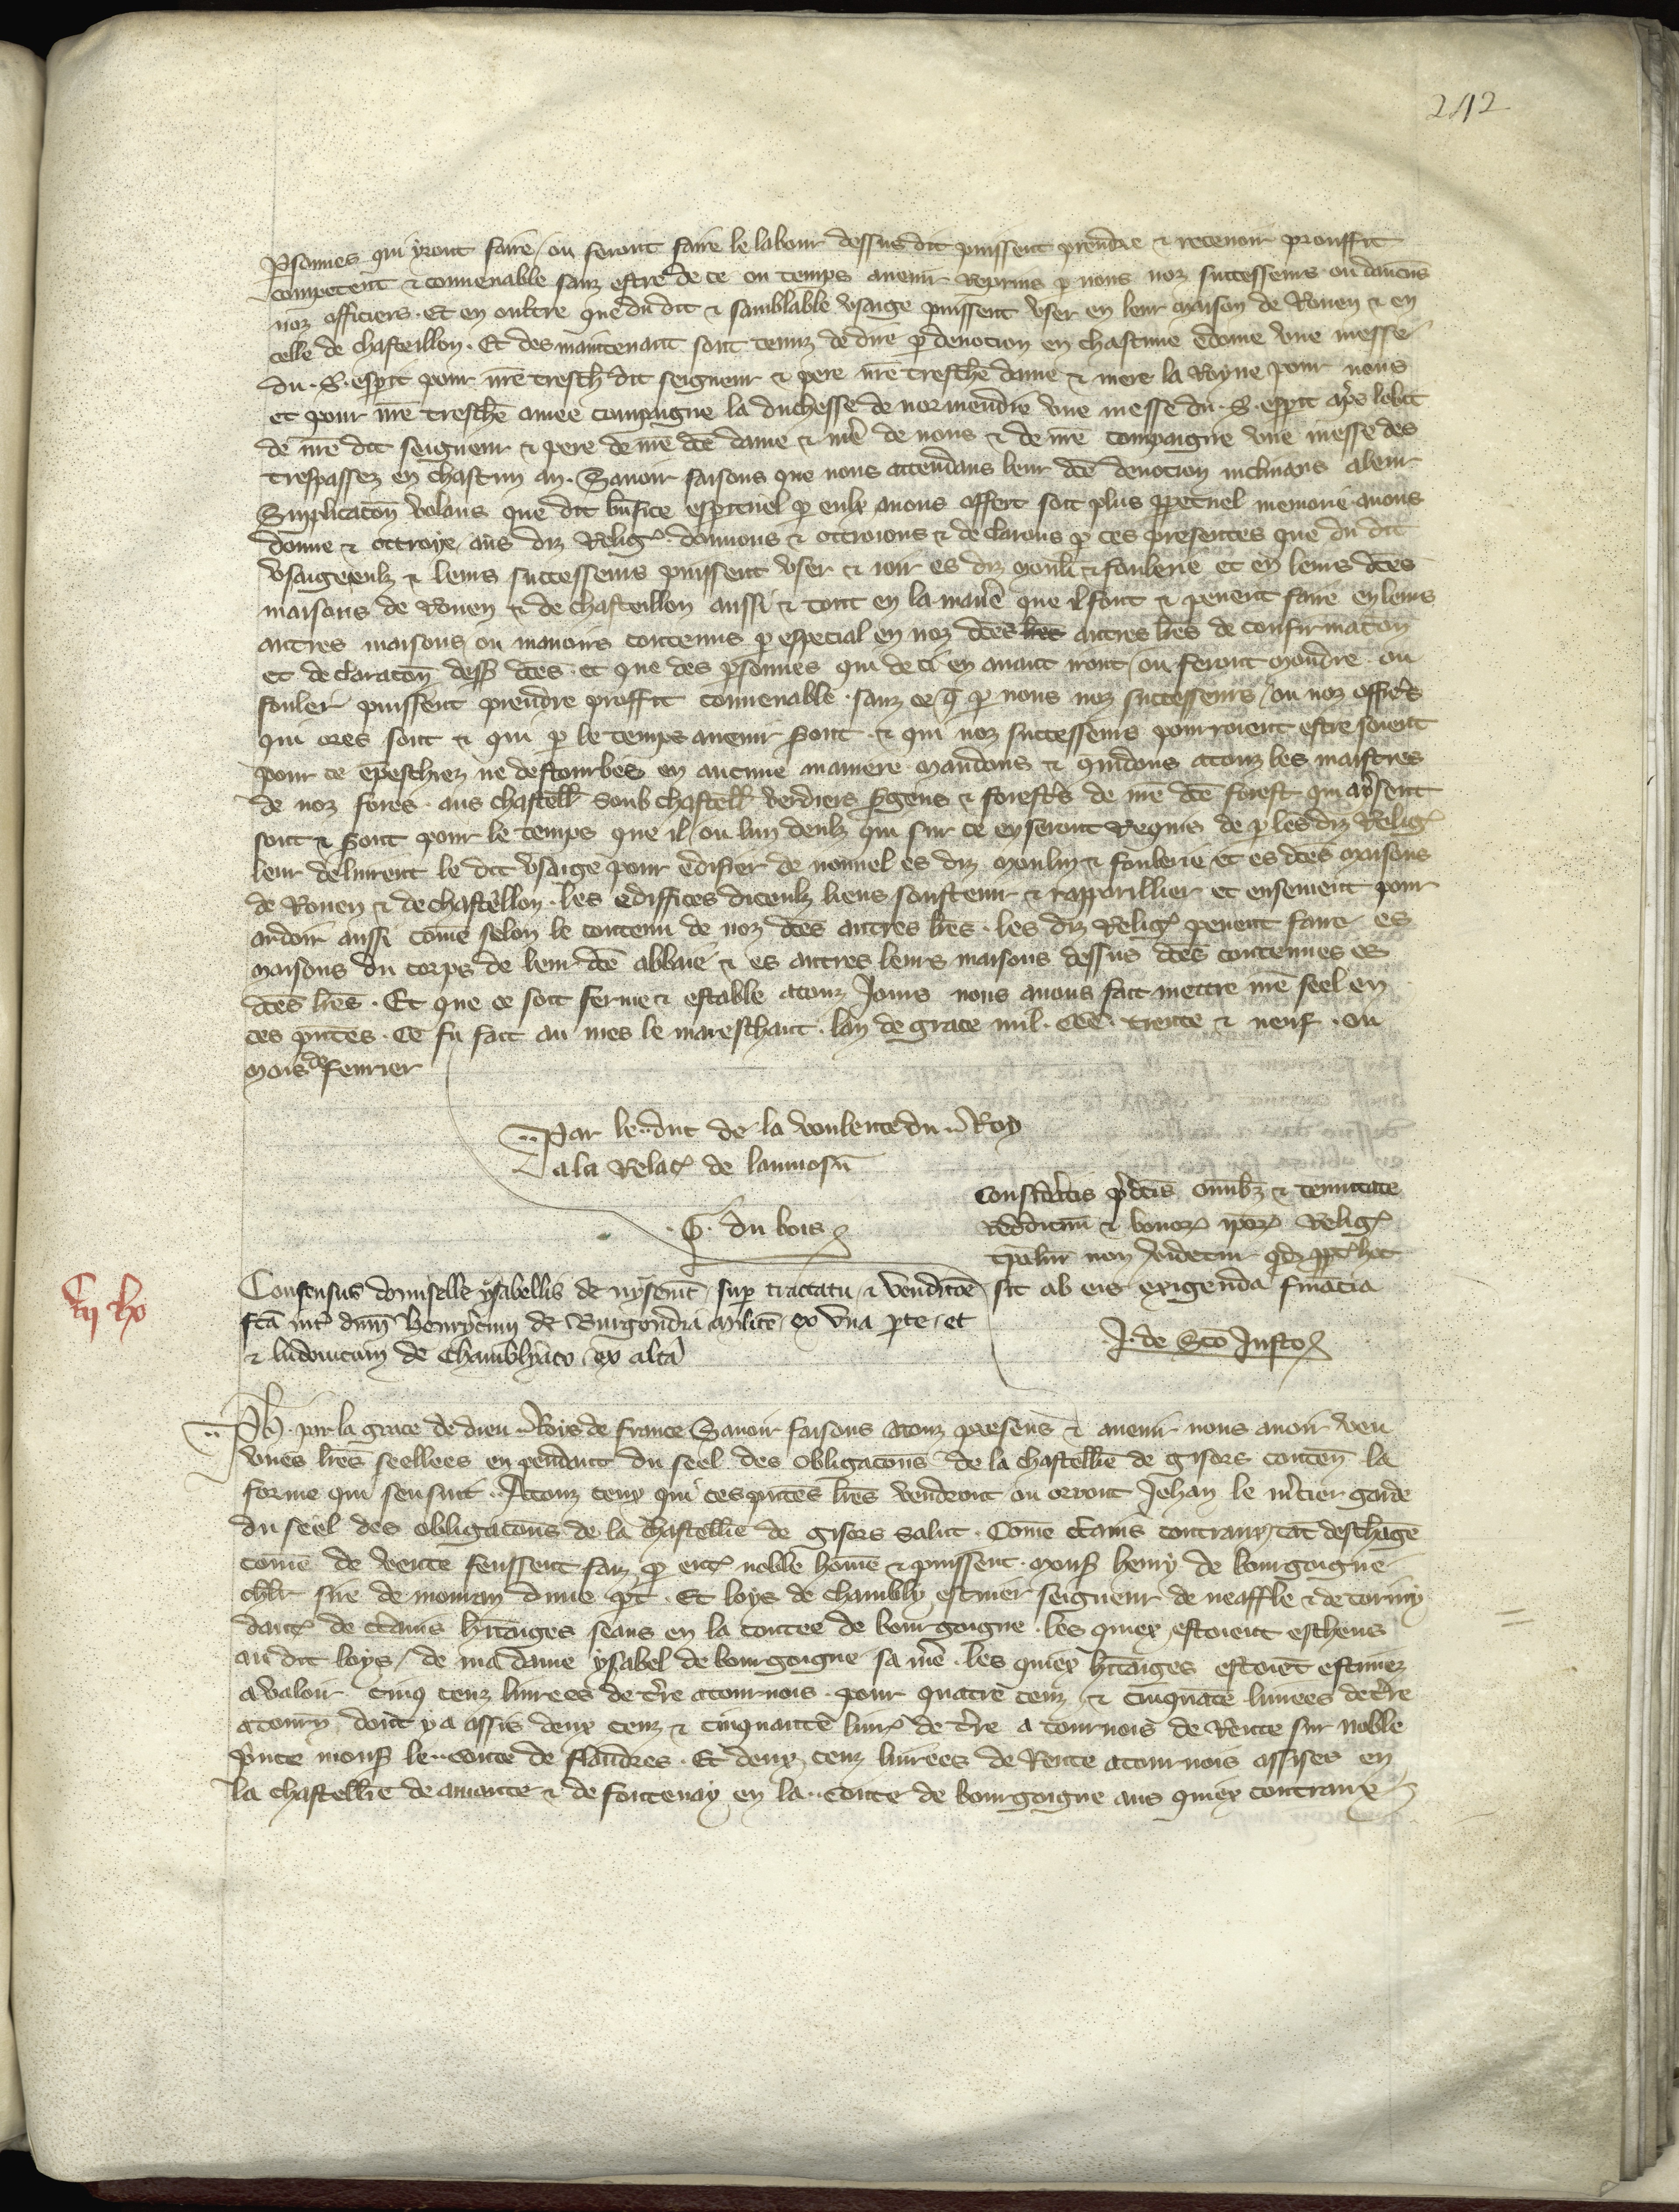 242
Psonnes qui yront faire / ou feront faire le labour dessus dit puissent prendre & recevoir prouffit
competent & convenable sanz estre de ce ou temps avenir repris p nous noz successeurs ou daucuns
noz officiers. Et en oultre que du dit & samblable usaige puissent user en leur maison de Rouen & en
celle de chasteillon. Et des maintenant sont tenuz de dire p devocion en chascune sepmaine une messe
du .S. esprit pour nre tresch dit seigneur & pere nre tresche dame & mere la Royne pour nous
et pour nre tresche amee compaigne la duchesse de normendie une messe du .S. esprit aps lobit
de nre dit seigneur & pere de nre dce dame & me de nous & de nre compaigne une messe des
trespassez en chascun an. Savoir faisons que nous attendans leur dce devocion inclinans a leur
Supplicacon volans que dit bnfice espirituel p eulx a nous offert soit plus ppetuel memoire avons
donne & ottroye aus diz Relig. donnons & ottroions & declarons p ces presentes que du dit
usaige eulz & leurs successeurs puissent user & joir es diz moulin & foulerie et en leurs dces
maisons de Rouen & de chasteillon aussi & tout en la manie que il font & pevent faire en leurs
autres maisons ou manoirs contenus p especial en noz dces autres lres de confirmacon
et declaracon dess dces. et que des psonnes qui de ci en avant iront / ou feront moudre ou
fouler puissent prendre proffit convenable. sanz ce q p nous noz successeurs / ou noz offics
qui ores sont & qui p le temps avenir sont & qui noz successeurs pourroient estre soient
pour ce empeschiez ne destourbes en aucune maniere. Mandons & comandons a touz les maistres
de noz fores. aus chastell soub chastell verdiers sgens & forests de nre dce forest qui a psent
sont & sont pour le temps que il / ou lun deulz qui sur ce en seront Requis de p les diz Relig
leur delivrent le dit usaige pour edifier de nouvel es diz moulin & foulerie et es dces maisons
de Rouen & de chastellon. les ediffices diceulz liens soustenir & rapparillier et ensement pour
ardoir aussi come selon le contenu de noz dces autres lres. les diz Relig pevent faire es
maisons du corps de leur dce abbaie & es autres leurs maisons dessus dces contenues es
dces lres. Et que ce soit ferme & estable a touz jours nous avons fait mettre nre seel en
ces pntes. Ce fu fait au mes le mareschaut. lan de grace mil. CCC. trente & neuf. ou
mois de fevrier
Par le duc de la voulente du Roy
a la Relac de laumosn
G. du bois
Consideratis pdcis omibz & tenuitate
reddituum & bonor ipor Relig
tpaliu non videtur qd ppt hoc
sit ab eis exigenda financia
J. de Sco Justo
Consensus domiselle ysabellis de sup tractatu & vendicoe
fca int dnm henrycum de Burgondia milite / ex una pte / et
& ludovicum de Chambliaco / ex alta
Ph. par la grace de dieu Roys de france Savoir faisons a touz presens & avenir nous avoir veu
unes lres seellees en pendant du seel des obligacons de la chastellie de gisors conten la
forme qui sensuit. A touz ceux qui ces pntes lres verront ou orront Jehan le mcier garde
du seel des obligacons de la chastellie de gisors Salut. Come ctains contraux / tat deschage
come de vente feussent faiz p entre noble home & puissent. monss henry de bourgoigne
chlr sire de dune pt. Et loys de chambly escuier seigneur de neaffle & de
dautre de ctains hitaiges seans en la contee de bourgoigne. les quiex estoient escheus
au dit loys / de ma dame ysabel de bourgoigne sa me. les quiex hitaiges estoiet estimez
a valoir cinq cenz livrees de tre a tournois. pour quatre cenz & cinquate livrees de tre
a tourn dont y a assis deux cenz & cinquante livr de tre a tournois de Rente sur noble
pince monss le conte de flandres. Et deux cenz livrees de Rente a tournois assises en
la chastellie de & de fontenay en la conte de bourgoigne aus quiex contraux